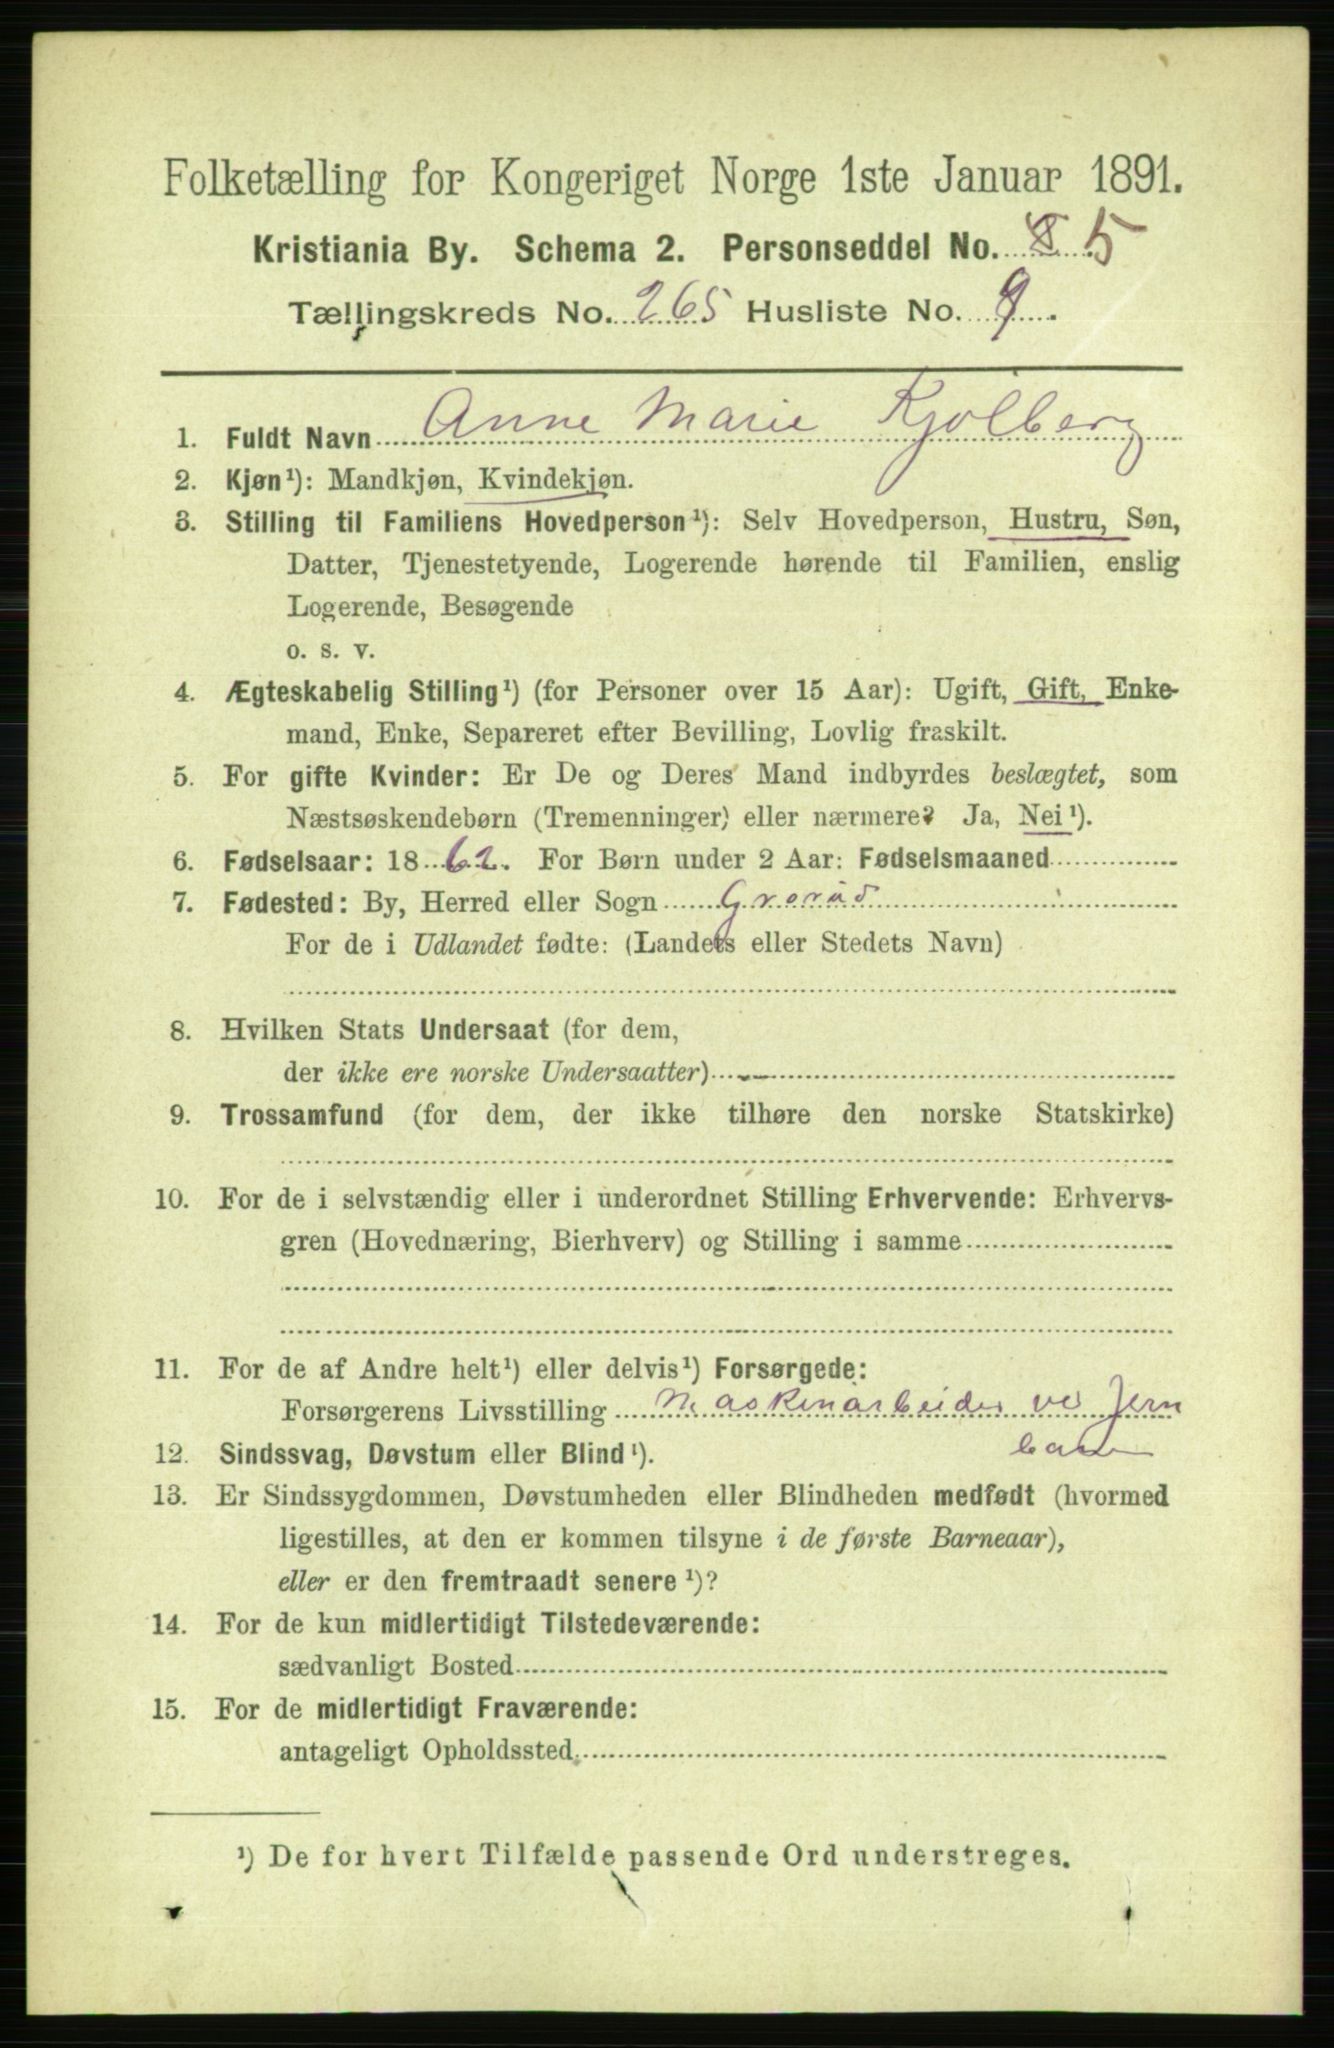 Folketælling for Kongeriget Norge 1ste Januar 1891.
Kristiania By. Schema 2. Personseddel No. 5
Tællingskreds No. 265 Husliste No. 9.
1. Fuldt Navn Anne Marie Kjølberg
2. Kjøn¹): Mandkjøn, Kvindekjøn.
3. Stilling til Familiens Hovedperson¹): Selv Hovedperson, Hustru, Søn,
Datter, Tjenestetyende, Logerende hørende til Familien, enslig
Logerende, Besøgende
o. s. v.
4. Ægteskabelig Stilling¹) (for Personer over 15 Aar): Ugift, Gift, Enke-
mand, Enke, Separeret efter Bevilling, Lovlig fraskilt.
5. For gifte Kvinder: Er De og Deres Mand indbyrdes beslægtet, som
Næstsøskendebørn (Tremenninger) eller nærmere? Ja, Nei¹).
6. Fødselsaar: 1862. For Børn under 2 Aar: Fødselsmaaned
7. Fødested: By, Herred eller Sogn Grorud
For de i Udlandet fødte: (Landets eller Stedets Navn)
8. Hvilken Stats Undersaat (for dem,
der ikke ere norske Undersaatter)
9. Trossamfund (for dem, der ikke tilhøre den norske Statskirke)
10. For de i selvstændig eller i underordnet Stilling Erhvervende: Erhvervs-
gren (Hovednæring, Bierhverv) og Stilling i samme
11. For de af Andre helt¹) eller delvis¹) Forsørgede:
Forsørgerens Livsstilling Maskinarbeider ve Jern
bane
12. Sindssvag, Døvstum eller Blind¹).
13. Er Sindssygdommen, Døvstumheden eller Blindheden medfødt (hvormed
ligestilles, at den er kommen tilsyne i de første Barneaar),
eller er den fremtraadt senere¹)?
14. For de kun midlertidigt Tilstedeværende:
sædvanligt Bosted
15. For de midlertidigt Fraværende:
antageligt Opholdssted
¹) De for hvert Tilfælde passende Ord understreges.